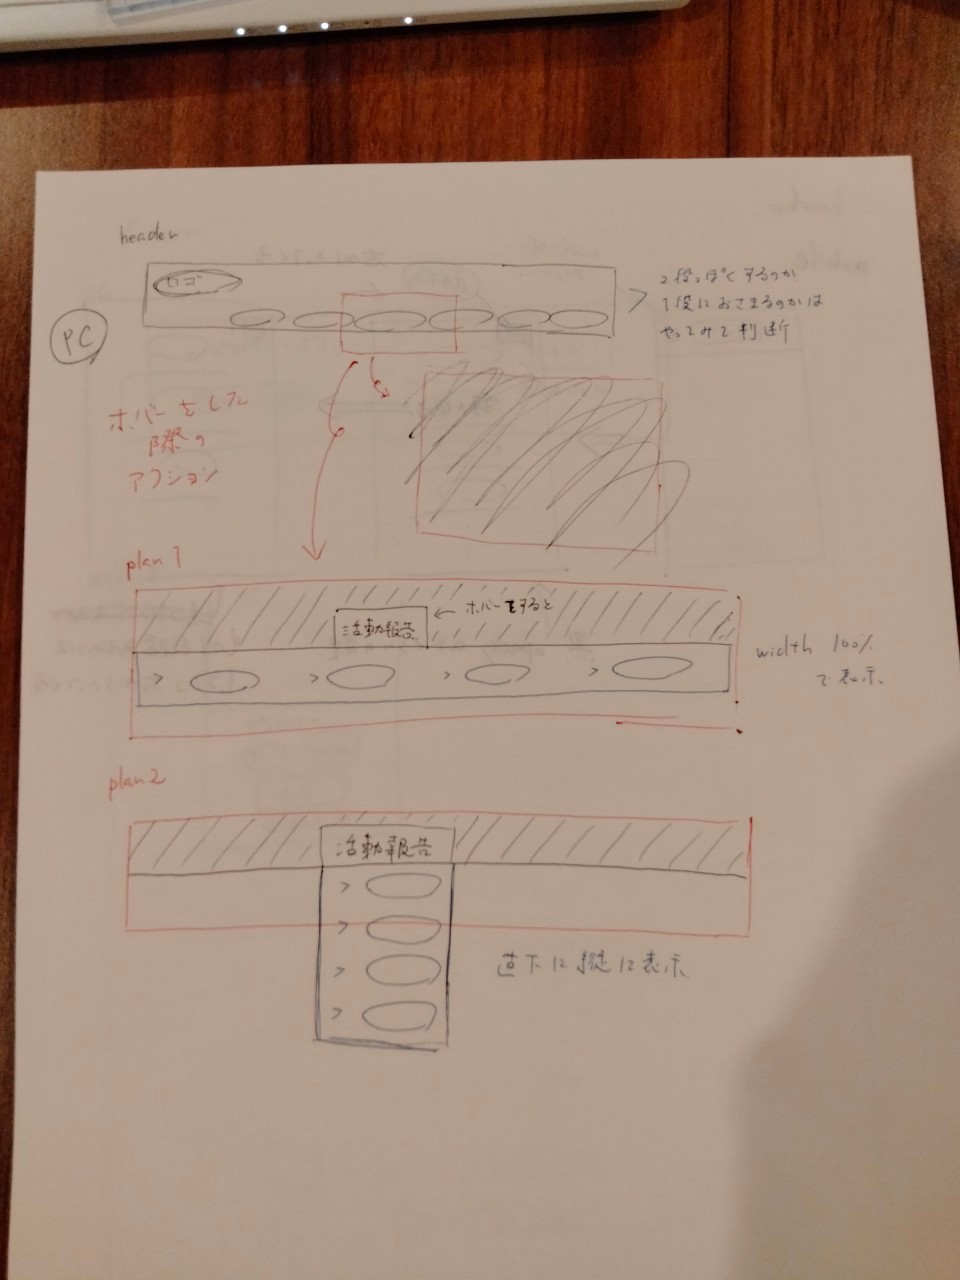 header
ロゴ
2段っぽくするのか
1段におさまるのかは
やってみて判断
PC
ホバーをした
際の
アクション
plan1
ホバーをすると
活動報告
width 100%
で表示
plan2
活動報告
直下に縦に表示